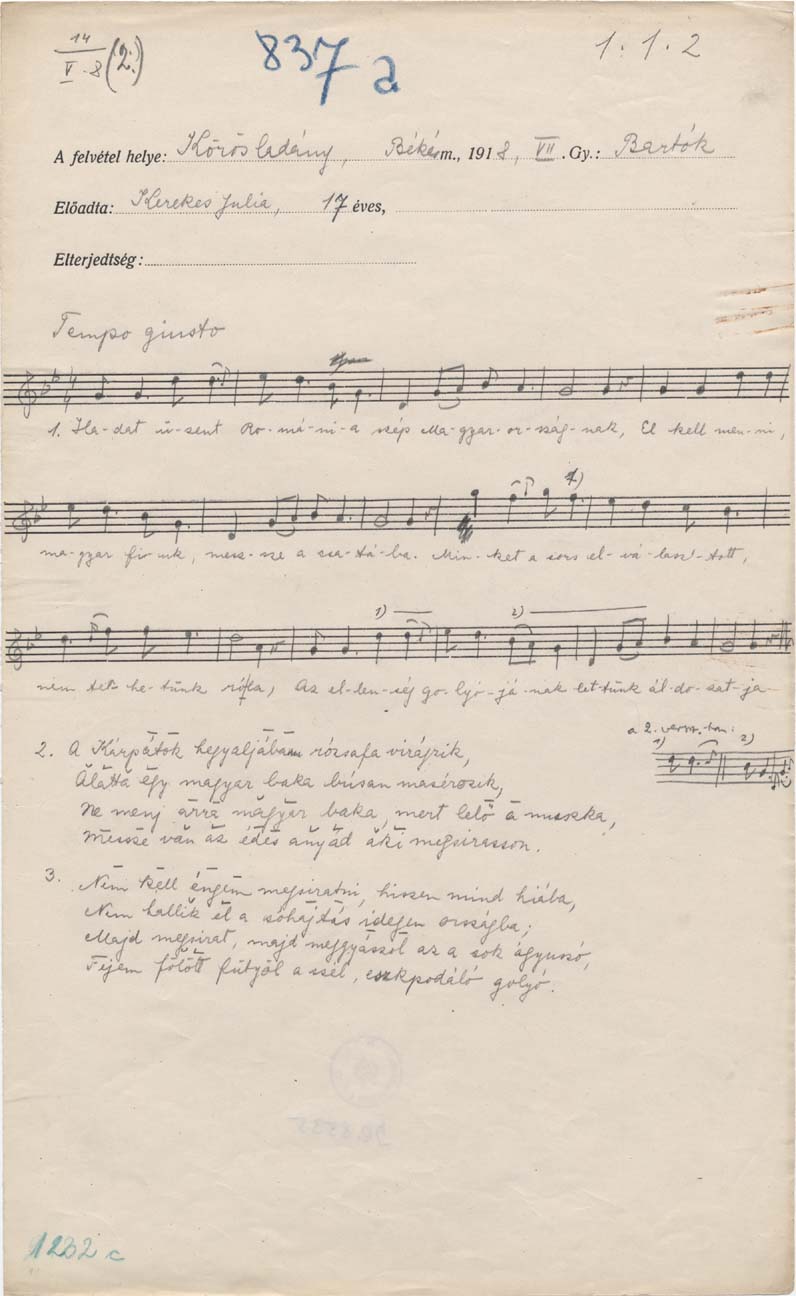 14
V. 8 (2.)
837 a
1. 1. 2
A felvétel helye: Körösladány, Békésm., 1918, VII. Gy.: Bartók
Előadta: Kerekes Julia, 17 éves,
Elterjedtség:
Tempo giusto
1. Ha-dat ü-sent Ro-má-ni-a szép Ma-gyar-or-szág-nak, El kell men-ni,
1)
ma-gyar fi-uk, mesz-sze a csa-tá-ba. Min-ket a sors el-vá-lasz-tott,
1) 2)
nem tet-he-tünk róla, Az el-len-ség go-lyó-já-nak let-tünk ál-do-zat-ja
a 2. versz.-ban:
1) 2)
2. A Kárpátok hegyaljában rózsafa virágzik,
Alatta egy magyar baka búsan masérozik,
Ne menj arra magyar baka, mert lelő a muszka,
Messze van az édes anyád aki megsirasson.
3. Nem kell engem megsiratni, hiszen mind hiába,
Nem hallik el a sóhajtás idegen országba;
Majd megsirat, majd meggyászol az a sok ágyuszó,
Fejem fölött fütyöl a szél, csapkodáló golyó.
1232 c